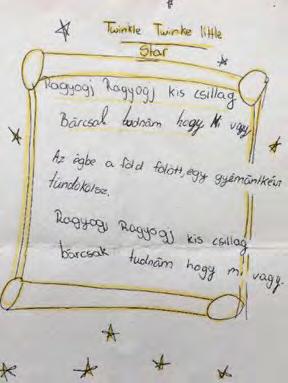 Twinkle Twinke little
Star
Ragyogj Ragyogj kis csillag
Bárcsak tudnám hogy Mi vagy
Az égbe a föld fölött, egy gyémántként
tündökölsz.
Ragyogj Ragyogj kis csillag
bárcsak tudnám hogy mi vagy.